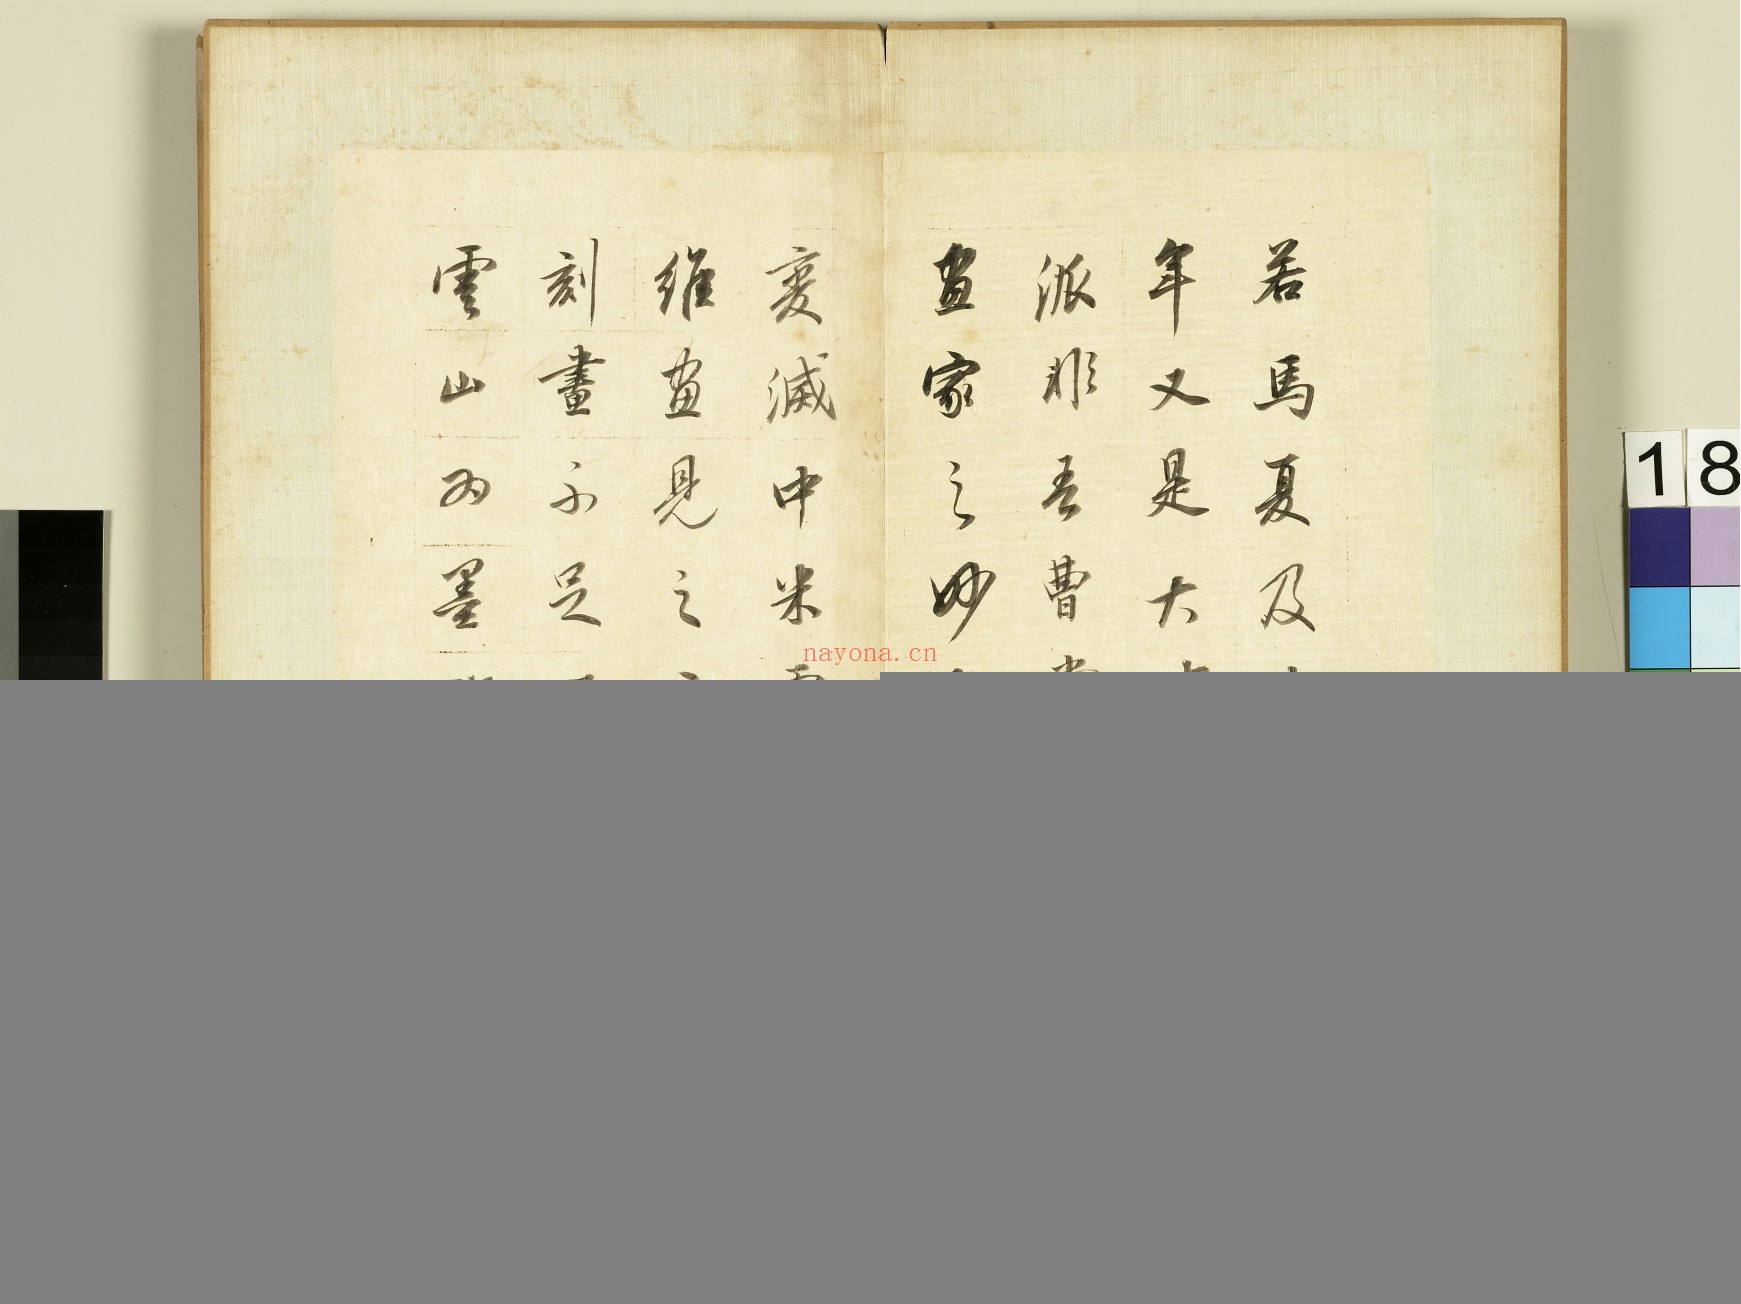 若馬夏及
年又是大
派非吾曹
畫家之妙
變滅中米
維畫見之
刻畫不足
雲山為墨
nayona.cn
18